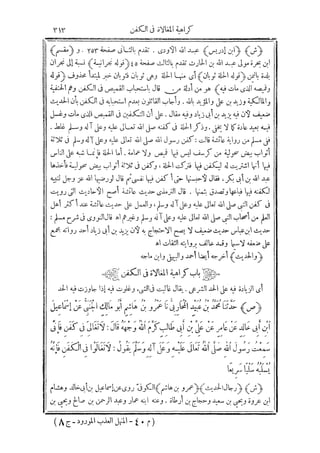 كراهية المغالاة فى الكفن ٣١٣
(ش) (ابن إدريس) عبد الله الأودى. تقدم بالثانى صفحة ٢٥٣ . و (مقسم)
ابن بجرة مولى عبد الله بن الحارث تقدم بالثالث صفحة ٤٥ (قوله نجرانية) نسبة إلى نجران
بلدة باليمن (قوله الحلة ثوبان) أى منها الحلة وهى ثوبان فثوبان خبر لمبتدأ محذوف (قوله
وقميصه الذى مات فيه) هو من أدلة من قال باستحباب القميص فى الكفن وهم الحنفية
والمالكية وزيد بن على والمؤيد بالله . وأجاب القائلون بعدم استحبابه فى الكفن بأن الحديث
ضعيف لأن فيه يزيد بن أبى زياد وفيه مقال . على أن التكفين فى القميص الذى مات وغسل
فيه بعيد عادة كما لا يخفى . وذكر الحلة فى كفنه صلى الله تعالى عليه وعلى آله وسلم غلط .
فنى مسلم من رواية عائشة قالت: كفن رسول الله صلى الله تعالى عليه وعلى آله وسلم فى ثلاثة
أثواب بيض سحولية من كرسف ليس فيها قميص ولا عمامة. أما الحلة فإنما شبه على الناس
فيها أنها اشتريت له ليكفن فيها فتركت الحلة . وكفن فى ثلاثة أثواب بيض سحولية فأخذها
عبد الله بن أبى بكر. فقال لأحبسنها حتى أكفن فيها نفسى ثم قال لو رضيها الله عز وجل لنبيه
لكفنه فيها فباعها وتصدق بثمنها . قال الترمذى حديث عائشة أصح الأحاديث التى رويت
فى كفن النبى صلى الله تعالى عليه وعلى آله وسلم، والعمل على حديث عائشة عند أكثر أهل
العلم من أصحاب النبى صلى الله تعالى عليه وعلى آله وسلم وغيرهم اهـ قال النووى فى شرح مسلم :
حديث ابن عباس حديث ضعيف لا يصح الاحتجاج به لأن يزيد بن أبى زياد أحد رواته مجمع
على ضعفه لا سيما وقد خالف بروايته الثقات اهـ
(والحديث) أخرجه أيضا أحمد والبيهقى وابن ماجه
باب كراهية المغالاة فى الكفن
أى الزيادة فيه على الحد الشرعى . يقال غاليت فى الشىء، وغلوت فيه إذا جاوزت فيه الحد
(ص) حَدَّثَنَا مُحَمَّدُ بْنُ عُبَيْدٍ الْمُحَارِبِيُّ نَا عَمْرُو بْنُ هَاشِمٍ أَبُو مَالِكٍ الْجَنْبِيُّ عَنْ إِسْمَاعِيلَ
ابْنِ أَبِي خَالِدٍ عَنْ عَامِرٍ عَنْ عَلِيِّ بْنِ أَبِي طَالِبٍ كَرَّمَ اللهُ وَجْهَهُ قَالَ: لَا تُغَالِ لِي فِي كَفَنٍ فَإِنِّي
سَمِعْتُ رَسُولَ اللهِ صَلَّى اللهُ تَعَالَى عَلَيْهِ وَعَلَى آلِهِ وَسَلَّمَ يَقُولُ: لَا تَغَالَوْا فِي الْكَفَنِ فَإِنَّهُ
يُسْلَبُهُ سَلْبًا سَرِيعًا
(ش) (رجال الحديث) (عمرو بن هاشم) الكوفى روى عن إسماعيل بن أبى خالد وهشام
ابن عروة ويحيى بن سعيد وحجاج بن أرطاة . وعنه ابنه عمار وعبد الرحمن بن صالح ويحيى بن
(م ٤٠ - المنهل العذب المورود - ج ٨)